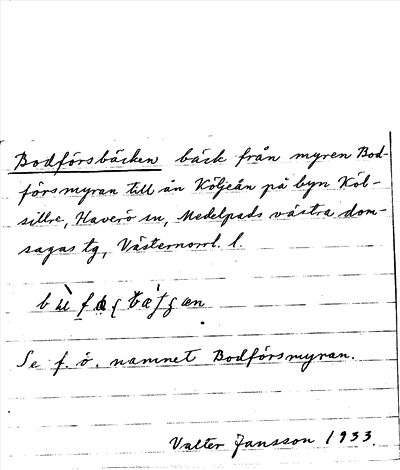 Bodförsbäcken bäck från myren Bod-
försmyran till ån Köljeån på byn Köl-
sillre, Haverö sn, Medelpads västra dom-
sagas tg, Västernorrl. l.
Se f. ö. namnet Bodförsmyran.
Valter Jansson 1933.